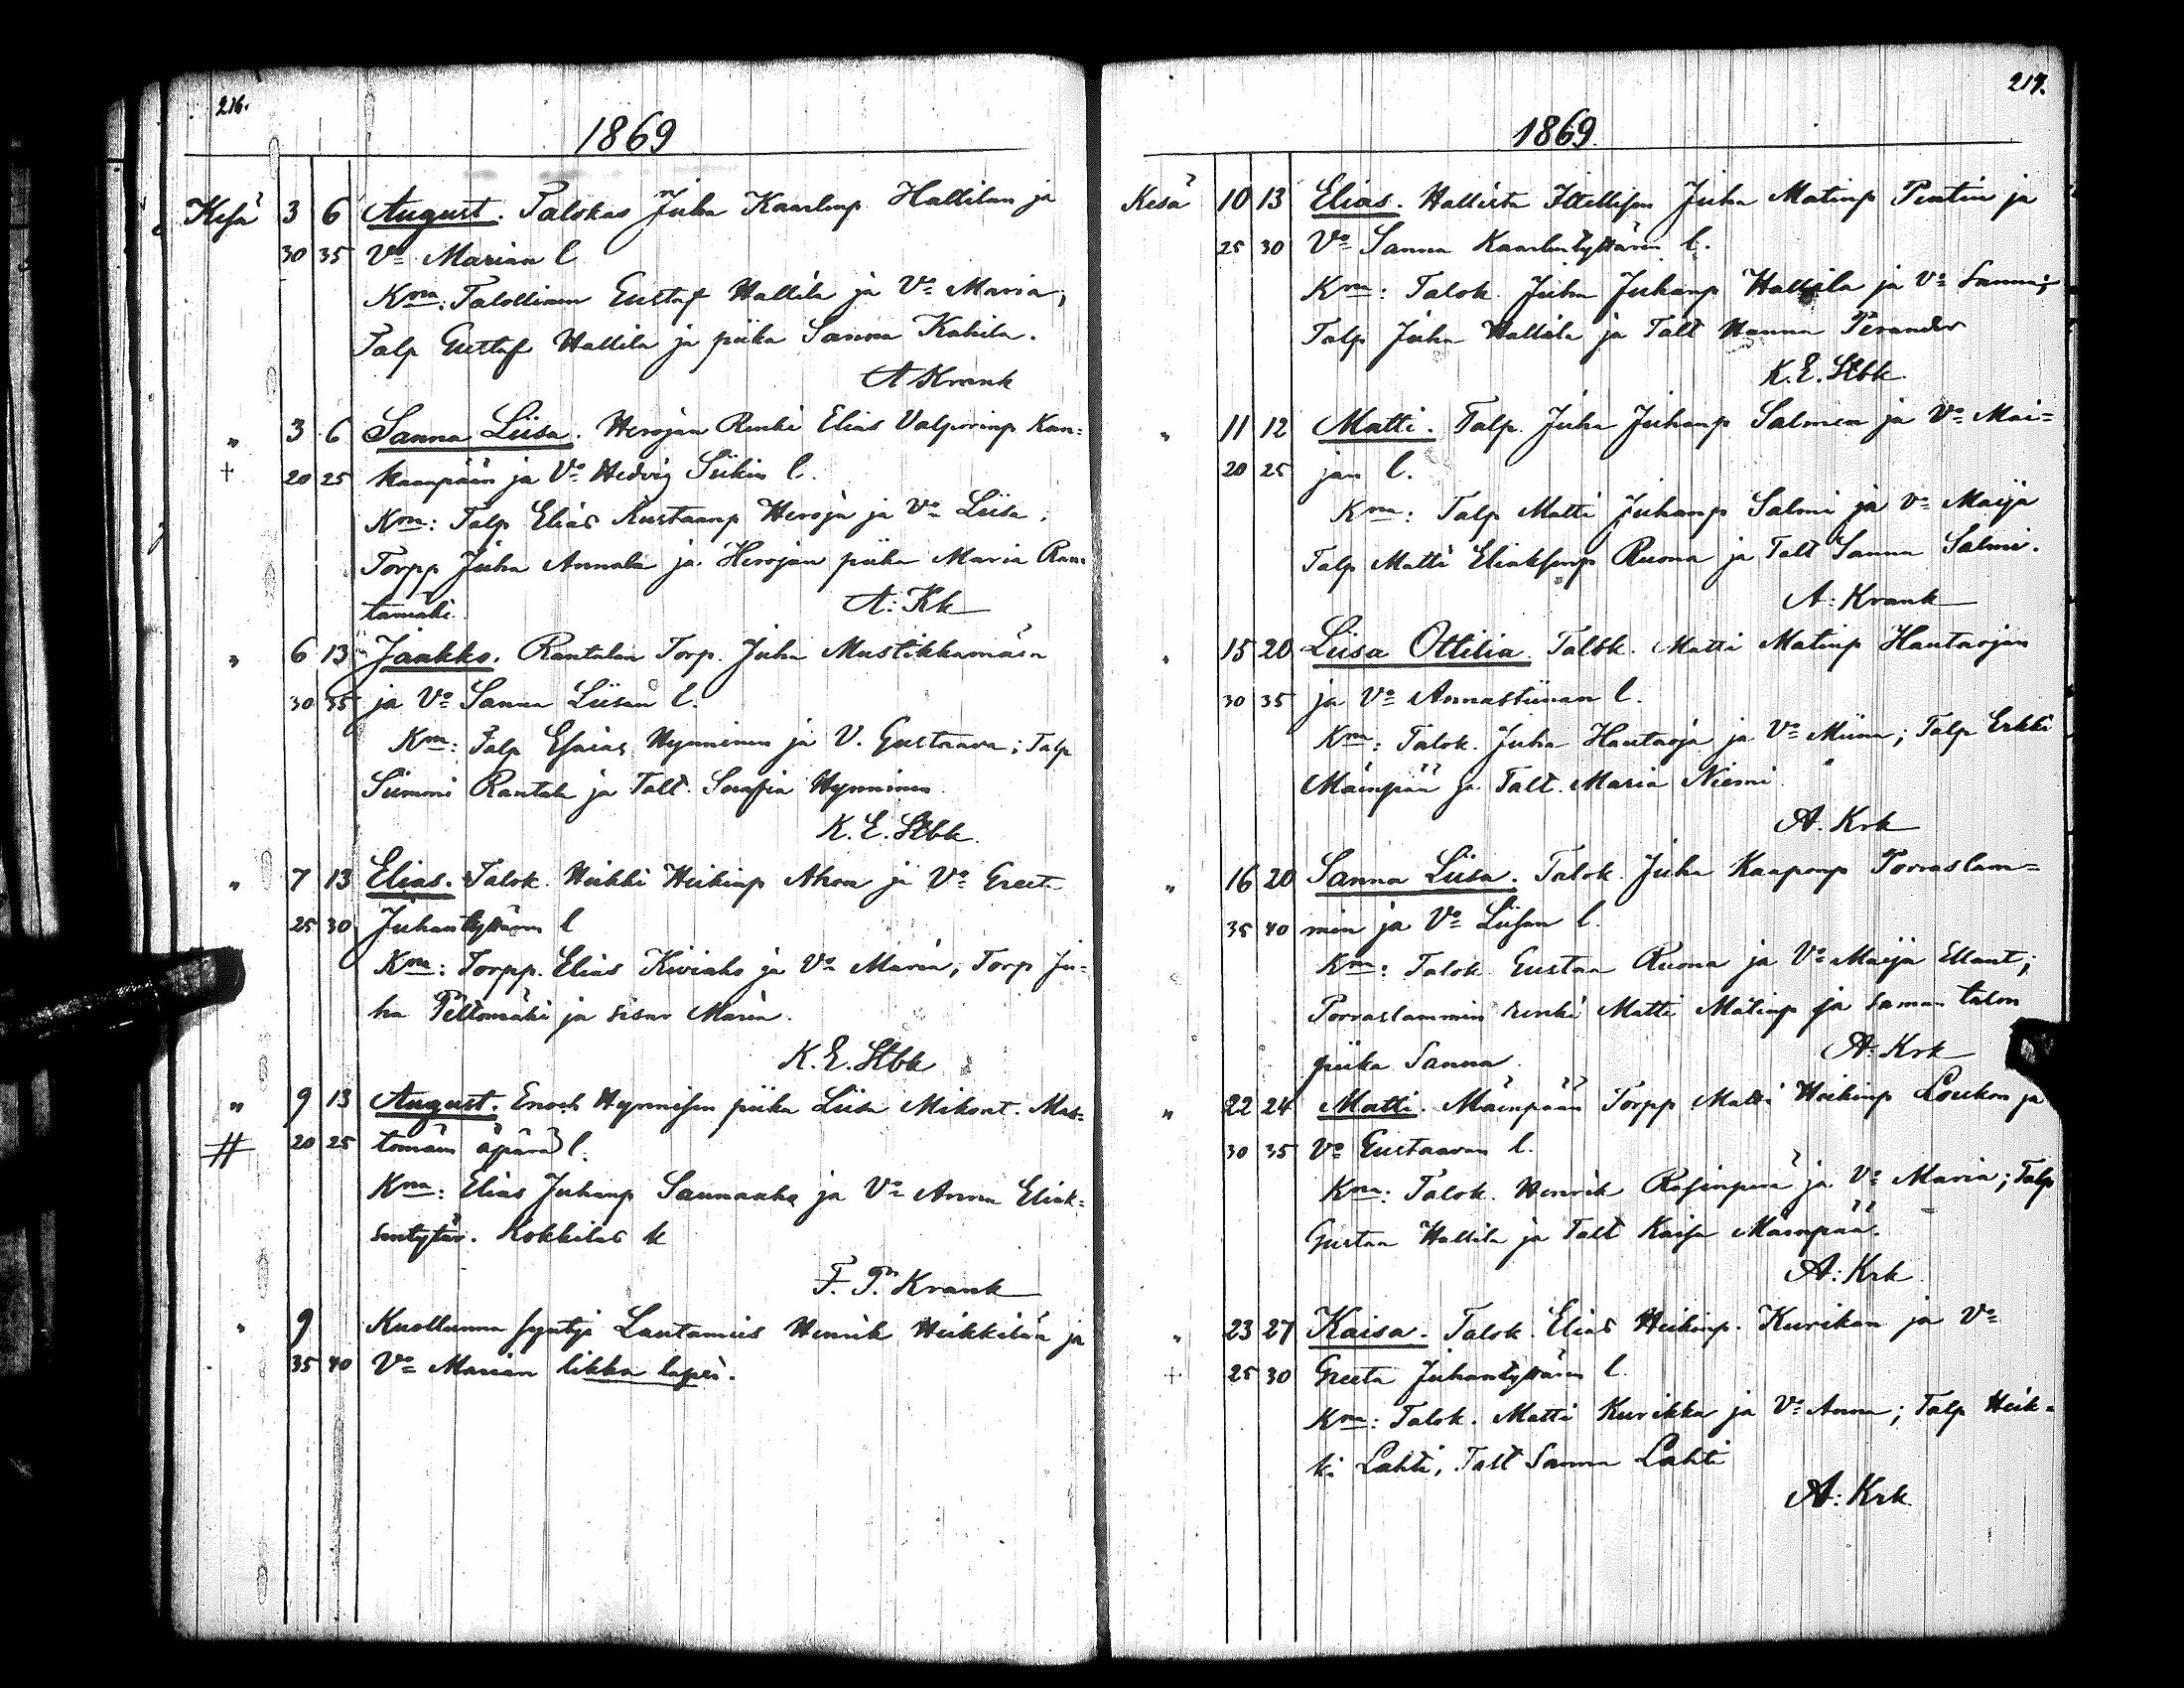 216.
1869
Kesä 3 6 August. Talokas Juha Kaarlinp Hallilan ja
30 35 Vo Marian l
Km: Talollinen Gustaf Hallila ja Vo Maria,
Talp Gustaf Hallila ja piika Sanna Kahila.
A Krank
" 3 6 Sanna Liisa. Herojan Renki Elias Valporinp Kan=
† 20 25 kaanpään ja Vo Hedvig Siikin l.
Km: Talp Elias Kustaanp Heroja ja Vo Liisa.
Torpp Juha Annala ja Herojan piika Maria Ran=
tamäki. A: Kk
" 6 13 Jaakko. Rantalan Torp. Juha Mustikkamäen
30 35 ja Vo Sanna Liisan l.
Km: Talp Esaias Hynninen ja V. Gustaava; Talp
Siimmi Rantala ja Talt. Serafia Hynninen
K. E. Stbk.
" 7 13 Elias. Talok. Heikki Heikinp Ahon ja Vo Greeta
25 30 Juhantyttären l
Km: Torpp. Elias Kiviaho ja Vo Maria, Torp Ju=
ha Peltomäki ja sisar Maria.
K. E. Stbk
" 9 13 August. Enoch Hynnisen piika Liisa Mikont. Mat=
# 20 25 tomäen äpärä l.
Km: Elias Juhanp Saunaaho ja Vo Anna Eliak=
sentytär. Kokkilas k
F. P. Krank
" 9 Kuollunna syntyi Lautamies Henrik Heikkilän ja
35 40 Vo Marian likka lapsi.
217.
1869.
Kesä 10 13 Elias. Hallista Itellisen Juha Matinp Pentin ja
25 30 Vo Sanna Kaarlentyttären l.
Km: Talok. Juha Juhanp Hallila ja Vo Sanna;
Talp Juha Hallila ja Talt Hanna Perander
K. E. Stbk.
" 11 12 Matti. Talp. Juha Juhanp Salmen ja Vo Mai=
20 25 jan l.
Km: Talp Matti Juhanp Salmi ja Vo Maija
Talp Matti Eliaksenp Ruona ja Talt Sanna Salmi.
A: Krank
" 15 20 Liisa Ottilia. Talok. Matti Matinp Hautaojan
30 35 ja Vo Annastiinan l.
Km: Talok. Juha Hautaoja ja Vo Miina; Talp Erkki
Mäenpää ja Talt. Maria Niemi
A. Krk
" 16 20 Sanna Liisa. Talok. Juha Kaaponp Porraslam=
35 40 min ja Vo Liisan l.
Km: Talok Gustaa Ruona ja Vo Maija Mant;
Porraslammin renki Matti Matinp ja saman talon
piika Sanna. A: Krk
" 22 24 Matti. Mäenpään Torpp Matti Heikinp Loukon ja
30 35 Vo Gustaavan l.
Km: Talok. Henrik Rasinperä ja Vo Maria; Talp
Gustaa Hallila ja Talt Kaisa Mäenpää.
A: Krk
" 23 27 Kaisa. Talok. Elias Heikinp. Kurikan ja Vo
† 25 30 Greeta Juhantyttären l.
Km: Talok. Matti Kurikka ja Vo Anna; Talp Heik=
ki Lahti, Talt Sanna Lahti
A: Krk.